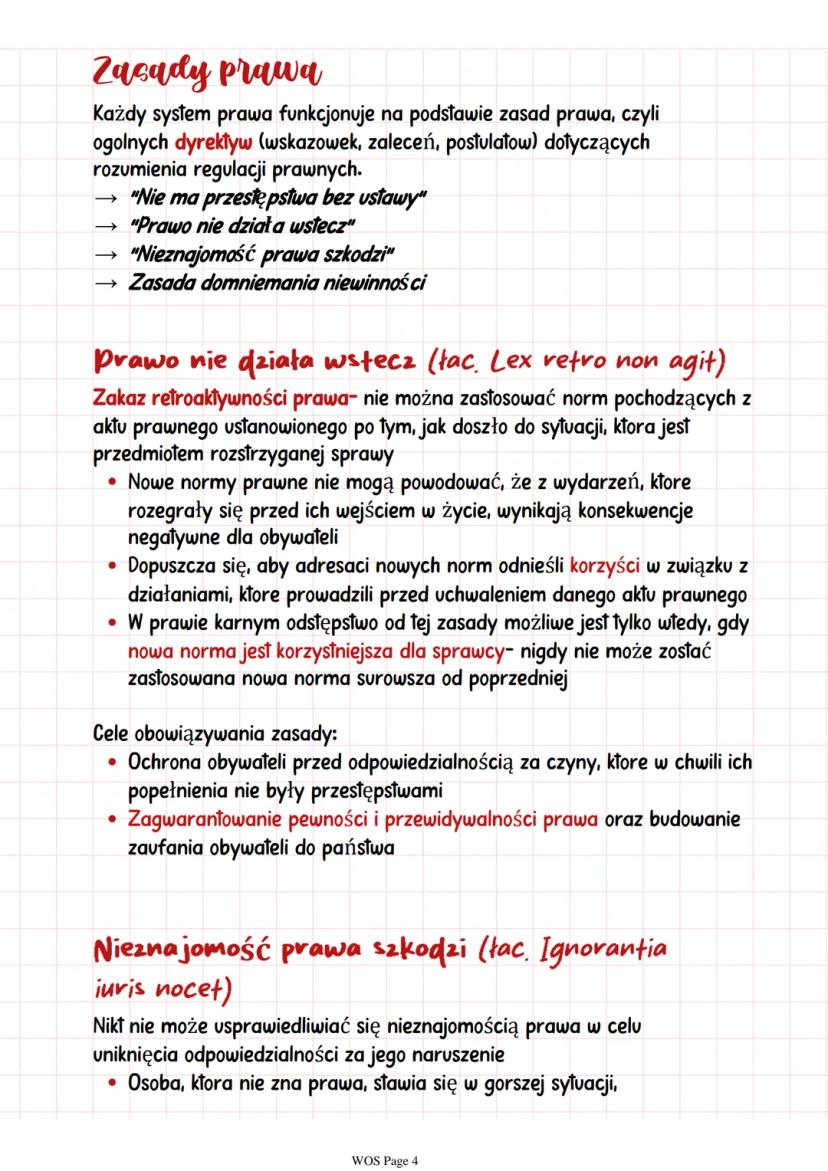 Zasady prawa
Każdy system prawa funkcjonuje na podstawie zasad prawa, czyli
ogolnych dyrektyw (wskazowek, zaleceń, postulatow) dotyczących
rozumienia regulacji prawnych.
→ "Nie ma przestępstwa bez ustawy"
→ "Prawo nie działa wstecz"
→ "Nieznajomość prawa szkodzi"
→ Zasada domniemania niewinności
Prawo nie działa wstecz (łac. Lex retro non agit)
Zakaz retroaktywności prawa- nie można zastosować norm pochodzących z
aktu prawnego ustanowionego po tym, jak doszło do sytuacji, ktora jest
przedmiotem rozstrzyganej sprawy
• Nowe normy prawne nie mogą powodować, że z wydarzeń, ktore
rozegrały się przed ich wejściem w życie, wynikają konsekwencje
negatywne dla obywateli
• Dopuszcza się, aby adresaci nowych norm odnieśli korzyści w związku z
działaniami, ktore prowadzili przed uchwaleniem danego aktu prawnego
• W prawie karnym odstępstwo od tej zasady możliwe jest tylko wtedy, gdy
nowa norma jest korzystniejsza dla sprawcy- nigdy nie może zostać
zastosowana nowa norma surowsza od poprzedniej
Cele obowiązywania zasady:
• Ochrona obywateli przed odpowiedzialnością za czyny, ktore w chwili ich
popełnienia nie były przestępstwami
• Zagwarantowanie pewności i przewidywalności prawa oraz budowanie
zaufania obywateli do państwa
Nieznajomość prawa szkodzi (łac. Ignorantia
iuris nocet)
Nikt nie może usprawiedliwiać się nieznajomością prawa w celu
uniknięcia odpowiedzialności za jego naruszenie
• Osoba, ktora nie zna prawa, stawia się w gorszej sytuacji,
WOS Page 4